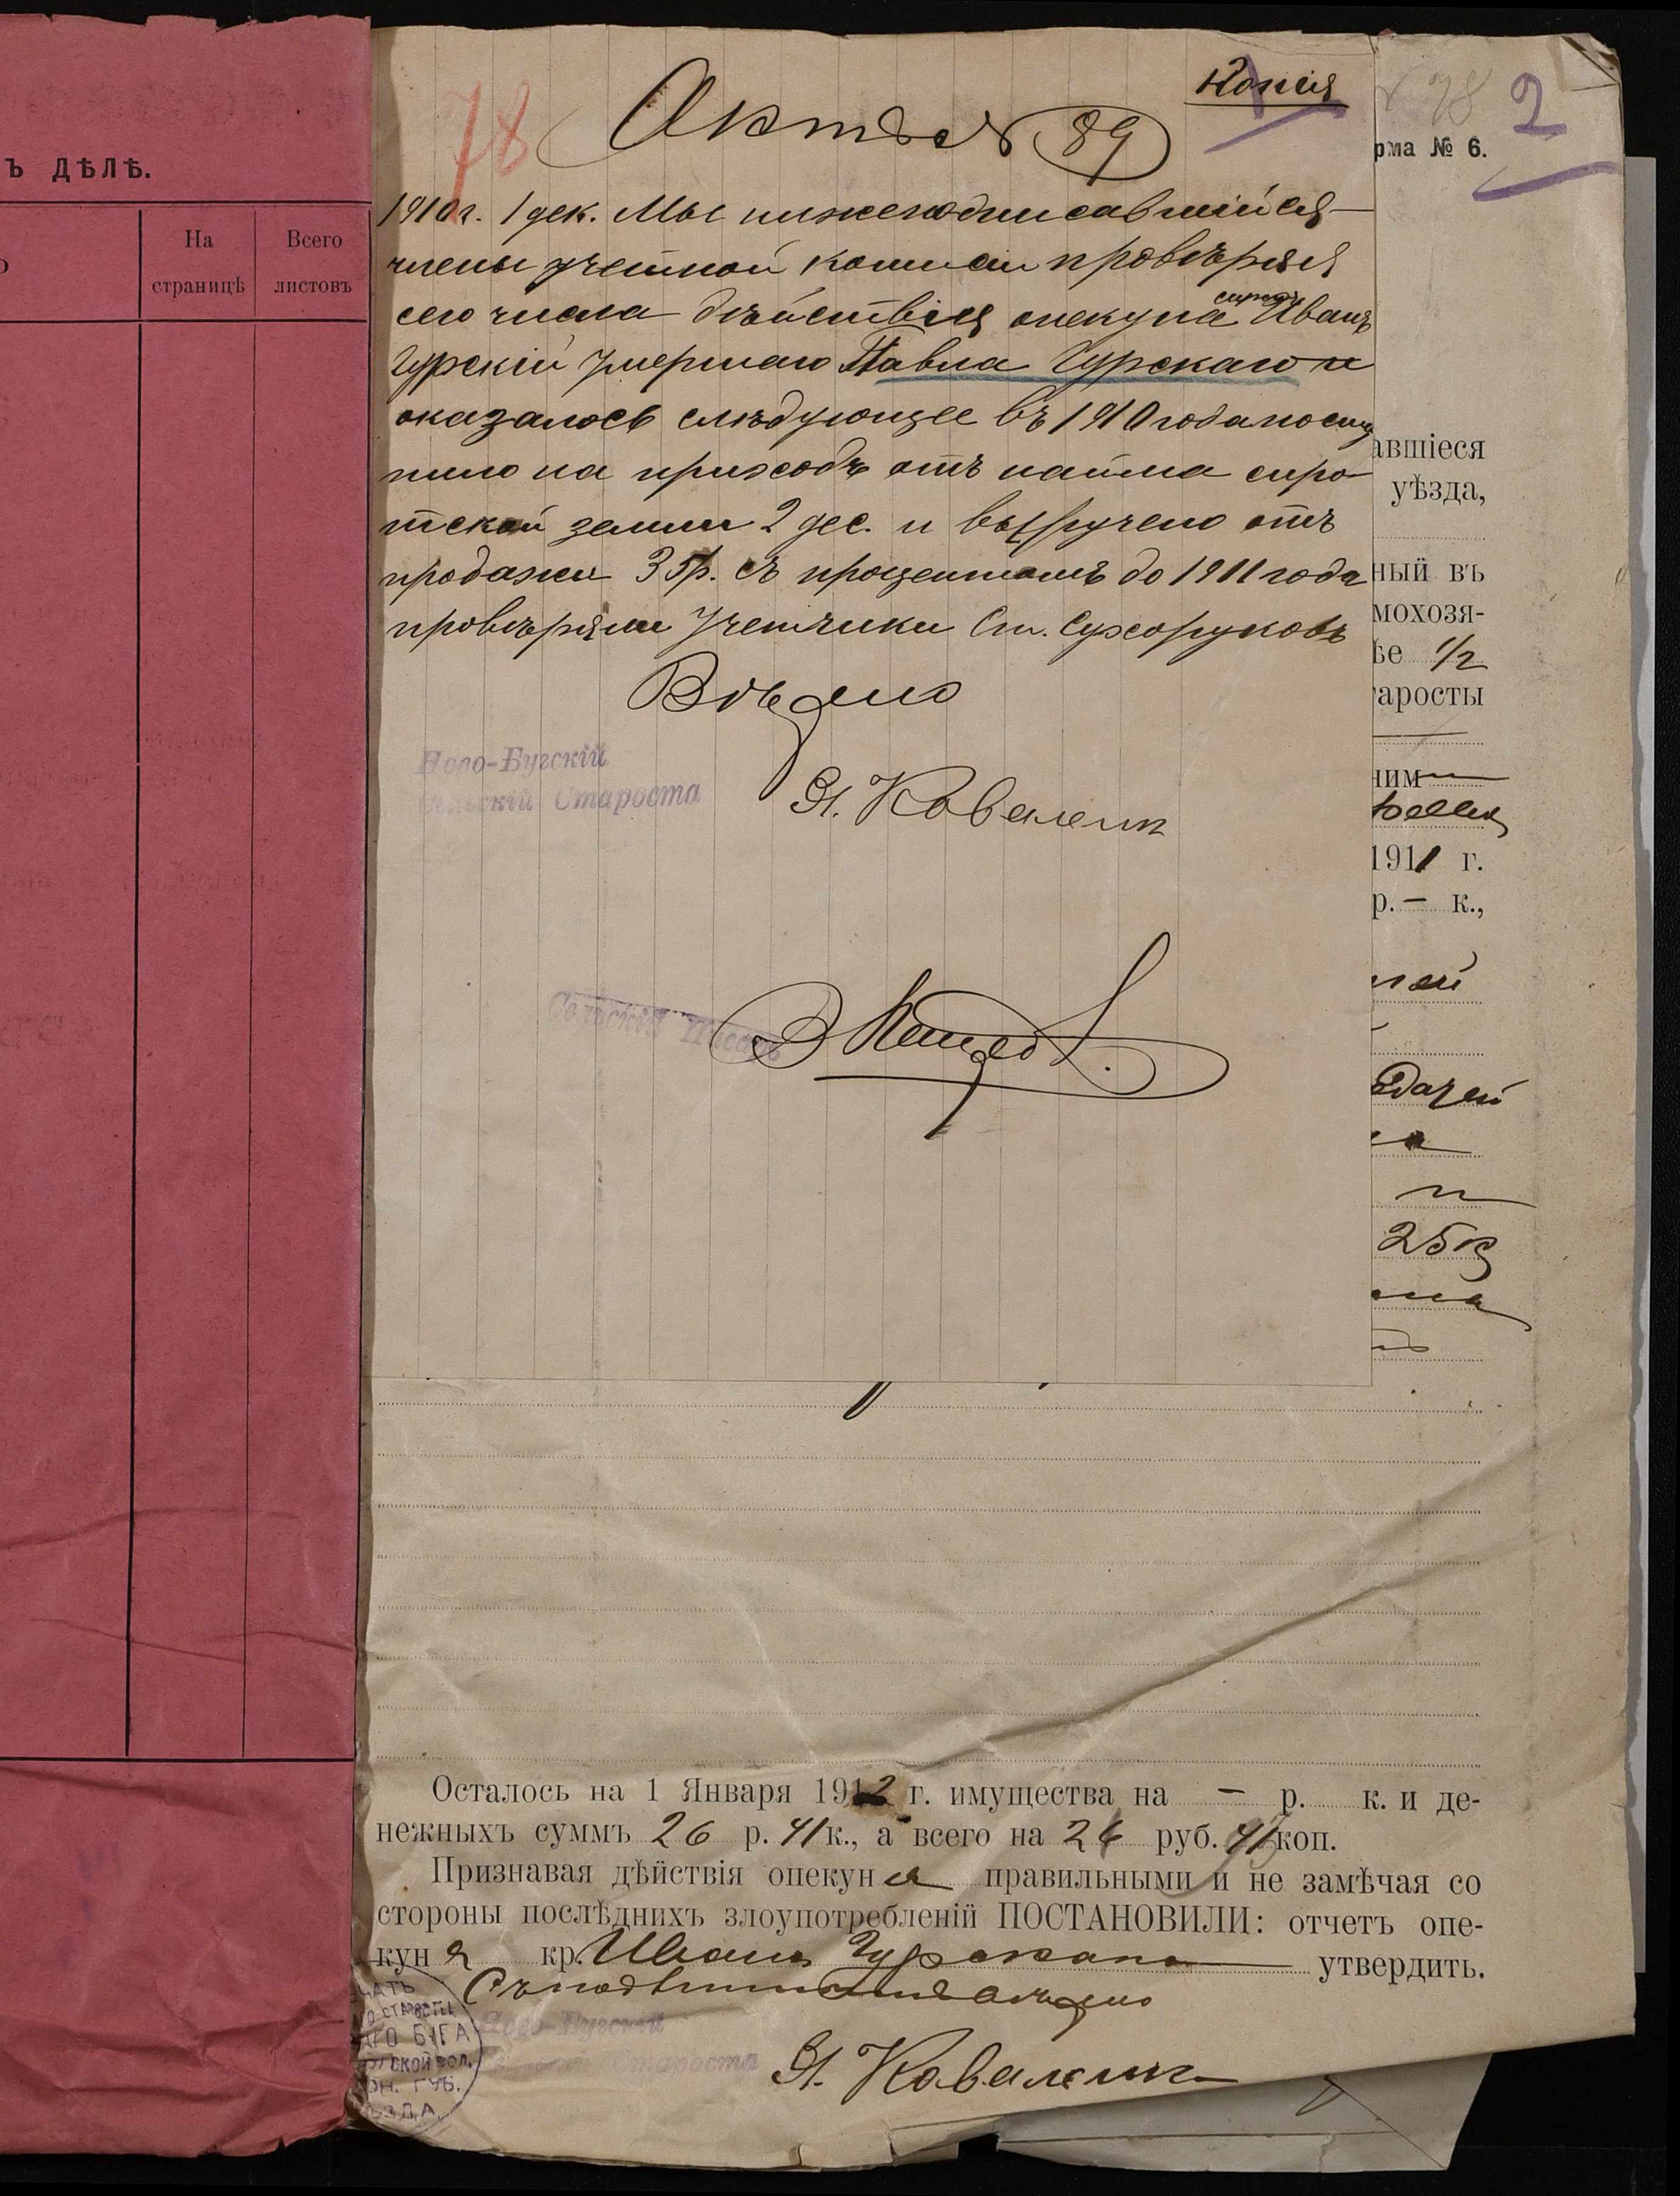 ъ дѣлѣ.
На странице
Всего листовъ
78
Копія
Актъ № 89
1910 г. 1 дек. Мы нижеподписавшійся
члены учетной комисіи провѣряя
сего числа дѣйствія опекуна сирот Иванъ
Гурскій умершаго Павла Гурскаго и
оказалось слѣдующее въ 1910 года посту
пило на приходъ отъ найма сиро
тской земли 2 дес. и выручено отъ
продажи 35р. съ процентомъ до 1911 года
провѣряли Учетчики Ст. Сухоруковъ
Вѣрно
Ново-Бугскій
Сельскій Староста
Я. Коваленк
Сельскій Писарь
78
2
рма № 6.
авшіеся
уѣзда,
ный въ
мохозя-
ѣе 1/2
аросты
ним
1911 г.
р. — к.,
дачей
и
25 к
Осталось на 1 Января 1912 г. имущества на — р. к. и де-
нежныхъ суммъ 26 р. 41 к., а всего на 26 руб. 41 коп.
Признавая дѣйствія опекуна правильными и не замѣчая со
стороны послѣднихъ злоупотребленій ПОСТАНОВИЛИ: отчетъ опе-
куна кр. Ивана Гурскаго утвердить.
Съ подлиннымъ вѣрно
Ново-Бугскій
Сельскій Староста
Я. Коваленк